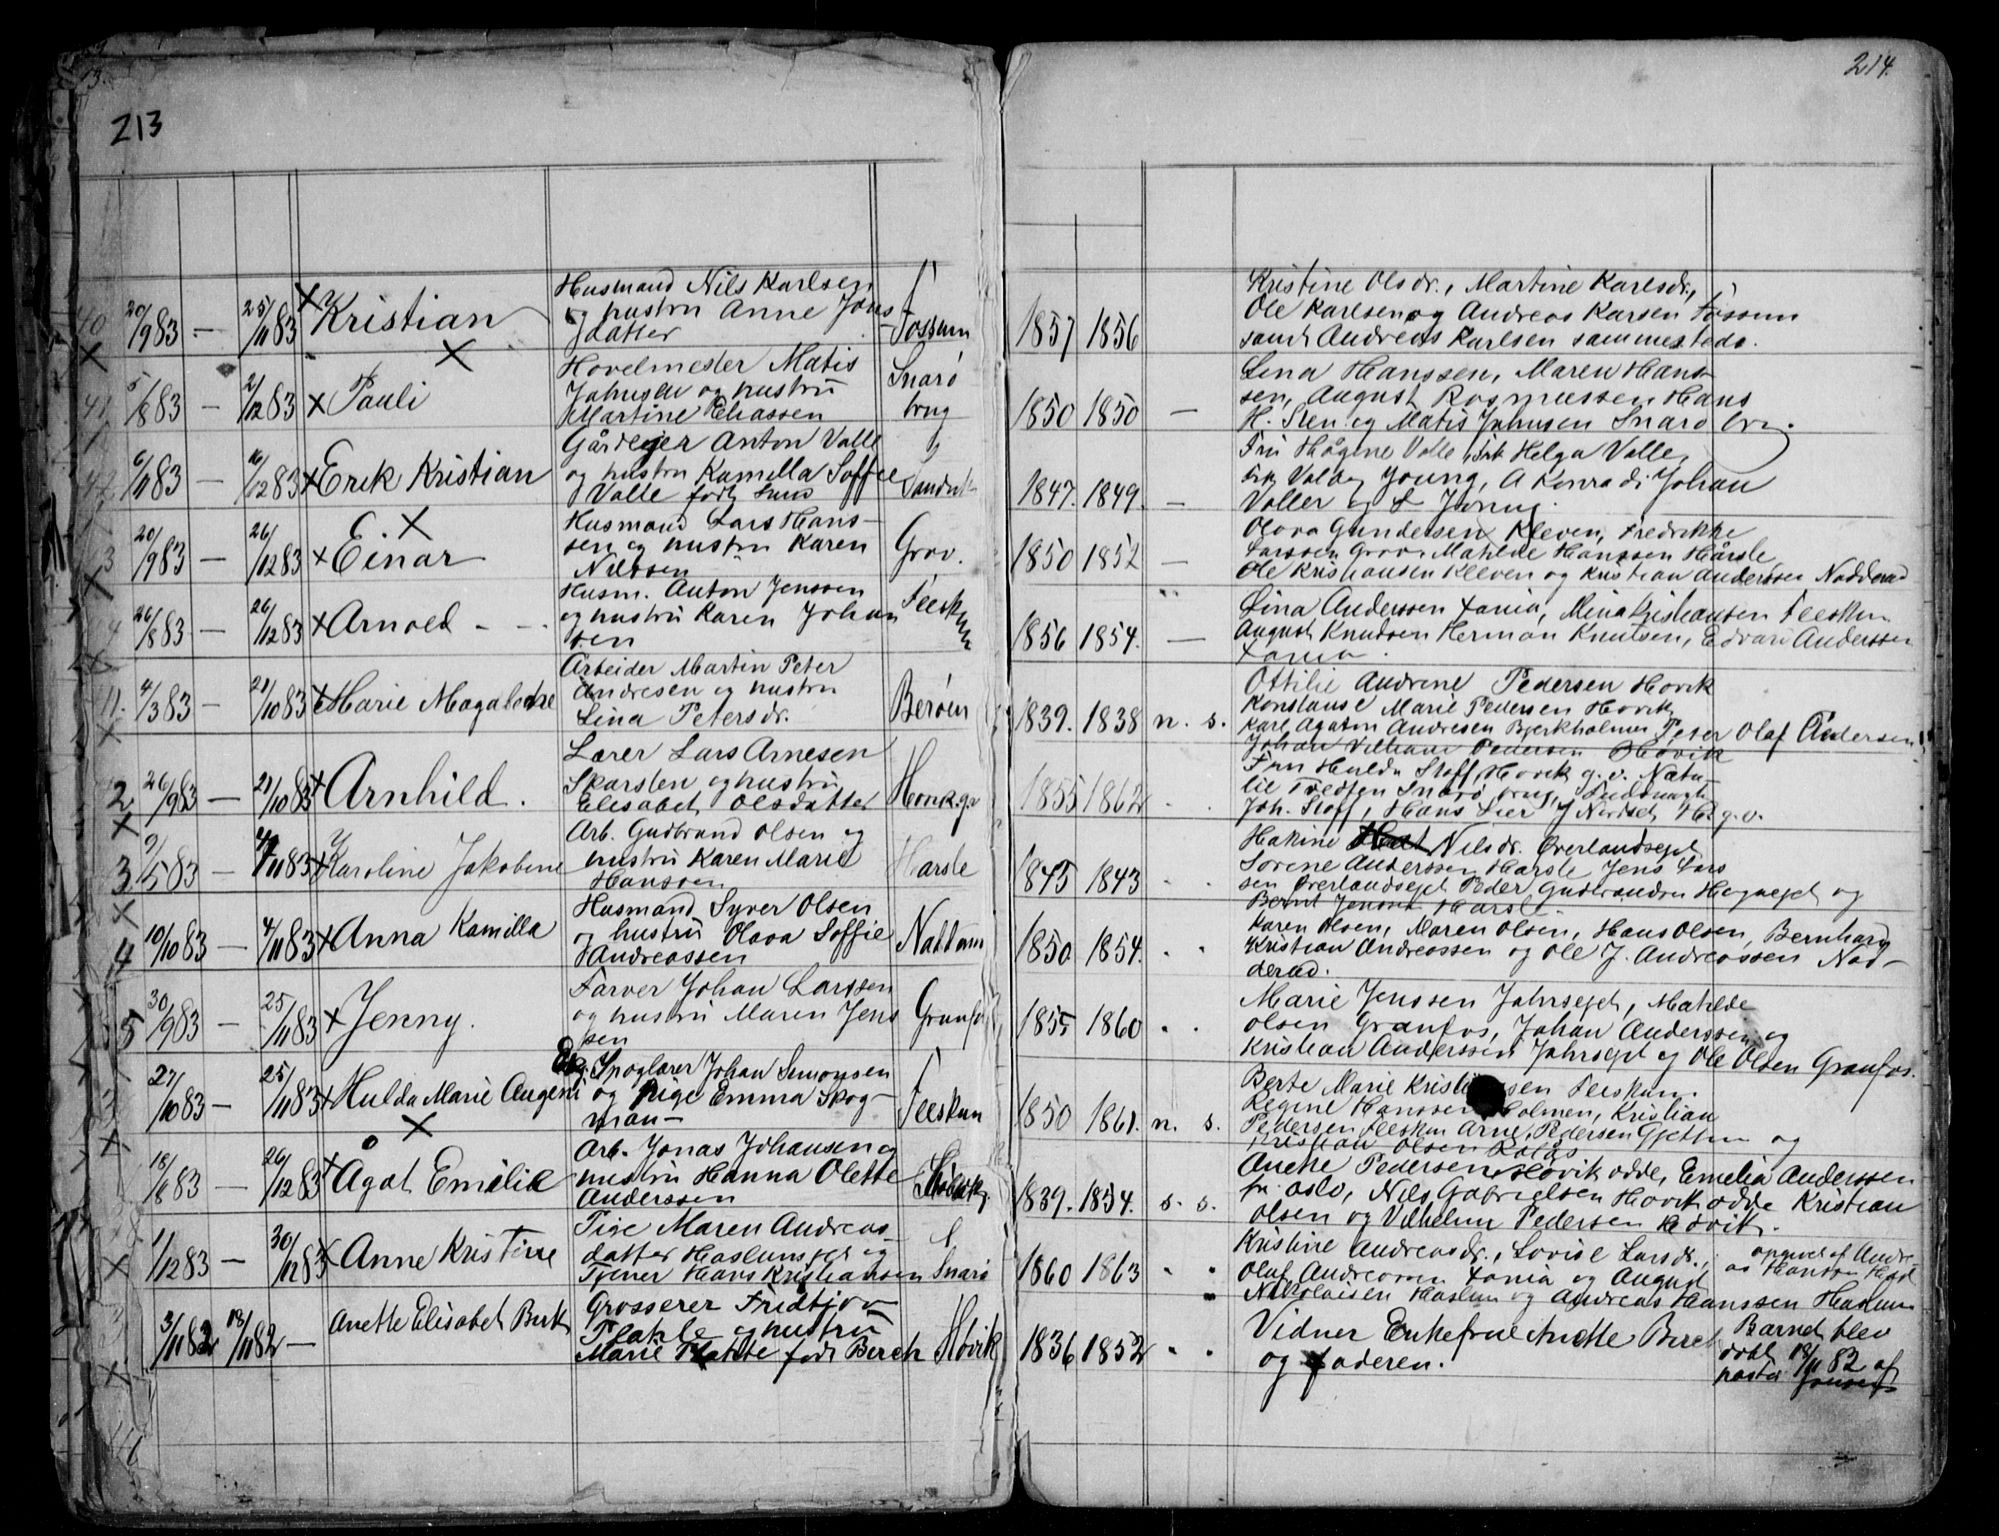 213
214.
40 20/9 83 — 25/11 83 Kristian
Husmand Nils Karlsen
og hustru Anne Jons
datter
Fossum
1857 1856
Kristine Olsdr., Martine Karlsdr.,
Ole Karlsen og Andreas Karsen Fossum
samt Andreas Karlsen sammesteds.
41 5/8 83 — 2/12 83 Pauli
Hovelmester Matis
Johnsen og hustru
Martine Eliassen
Snarø
brug
1850 1850 —
Lina Hanssen, Maren Hans
sen, August Rasmussen Hans
H. Sten og Matis Johnsen Snarø brug.
42 6/11 83 — 16/12 83 Erik Kristian
Gårdejer Anton Valle
og hustru Kamilla Soffie
Valle født
Sandvik
1847. 1849. —
Fru Hågine Valle, Frk Helga Valle,
Valby Young, A Konradi Johan
Valler og L Young.
43 20/9 83 — 26/12 83 Einar
Husmand Lars Hans-
sen og hustru Karen
Nilssen
Grav.
1850 1852 —
Olava Gundersen Kleven, Fredrikke
Larssen Grav, Matilde Hanssen Hårsle
Ole Kristiansen Kleven og Kristian Anderssen Nadderud
44 26/8 83 — 26/12 83 Arnold - -
Husm. Anton Jenssen
og hustru Karen Johan
sen
Feeskum
1856 1854. —
Lina Anderssen Lania, Mina Kristiansen Feeskum
August Knudsen Herman Knutsen, Edvard Anderssen
Lania.
11. 4/3 83 — 21/10 83 Marie Magalene
Arbeider Martin Peter
Andresen og hustru
Lina Petersdr.
Berøen
1839. 1838 n. s.
Ottilie Andrine Pedersen Høvik
Konstanse Marie Pedersen Høvik
Karl Agaton Andresen Bjerkholmen Peter Olaf Andersen
Johan Vilhelm Pedersen Høvik
2 26/9 83 — 21/10 83 Arnhild.
Lærer Lars Arnesen
Skarsten og hustru
Elisabet Olsdatter
Høvik g.v
1855 1862 . .
Fru Hulda Stoff Høvik g. v. Natu-
lie Tredsen Snarø brug,
Joh. Stoff, Hans Lier, J Nordset H. g. v.
3 9/5 83 — 4/11 83 Karoline Jakobine
Arb. Gudbrand Olsen og
hustru Karen Marie
Hanssen
Harsle
1845 1843 . .
Hakine Nilsdr. Øverlandsejet
Sørene Anderssen Harsle Jens Lars
sen Øverlandsejet Peder Gudbrandsen Hagaejet og
Bernt Jenssen Harsle.
4 10/10 83 — 4/11 83 Anna Kamilla
Husmand Syver Olsen
og hustru Olava Soffie
Andreassen
Nadderu
1850 1854. . .
Karen Olsen, Maren Olsen, Hans Olsen, Bernhard
Kristian Andreassen og Ole J. Andreassen Nad-
derud.
5 30/9 83 — 25/11 83 Jenny.
Farver Johan Larssen
og hustru Maren Jens
sen
Granfos
1855 1860 . .
Marie Jenssen Jahrsejet, Matilde
Olsen Granfos, Johan Anderssen og
Kristian Anderssen Jahrsejet og Ole Olsen Granfos.
27/10 83 — 25/11 83 Hulda Marie Augenie
Skoglærer Johan Simonsen
og Pige Emma Skog-
man —
Feeskum
1850 1861. n. s.
Berte Marie Kristiansen Feeskum.
Regine Hanssen Holmen, Kristian
Pedersen Feeskum Arne Pedersen Gjettum og
Kristian Olsen Kolås
18/8 83 — 26/12 83 Ågot Emilie
Arb. Jonas Johansen og
hustru Hanna Olette
Anderssen
1839. 1854. s. s.
Anette Pedersen Høvikodde, Emelia Anderssen
fr. Oslo, Nils Gabrielsen Høvikodde Kristian
Olsen og Vilhelm Pedersen Høvik.
1/12 83 — 30/12 83 Anne Kristine
Pige Maren Andreas-
datter Haslumsejet og
Tjener Hans Kristiansen
Snarø
1860 1863 . .
Kristine Andreasdr., Lovise Larsdr.,
Olaf Andreassen Lania og August
Nikolaisen Haslum og Andreas Hanssen Haslum
opgivet af Andre-
as Hanssen Hasl
3/11 82 18/11 82 — Anette Elisabet Birk
Grosserer Fridtjov
Plahte og hustru
Marie Plahte født Berch
Høvik
1836 1852 . .
Vidner Enkefrue Anette Berch
og faderen.
Barnet blev
døbt 18/11 82 af
pastor Jonssen